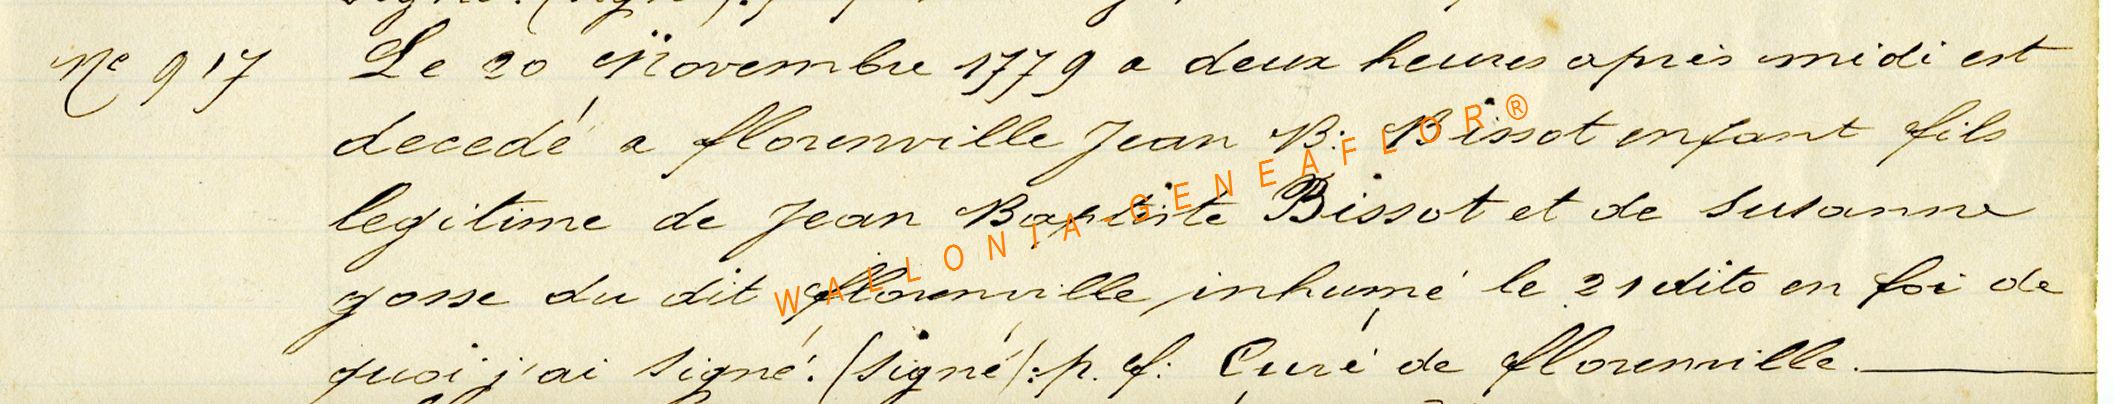 Nº 917 Le 20 Novembre 1779 a deux heures après midi est
decedé a florenville Jean B: Bissot enfant fils
legitime de Jean Baptiste Bissot et de Susanne
gosse du dit florenville inhumé le 21 dito en foi de
quoi j'ai signé: (signé): p. f: Curé de florenville.
WALLONIA-GENEAFLOR®